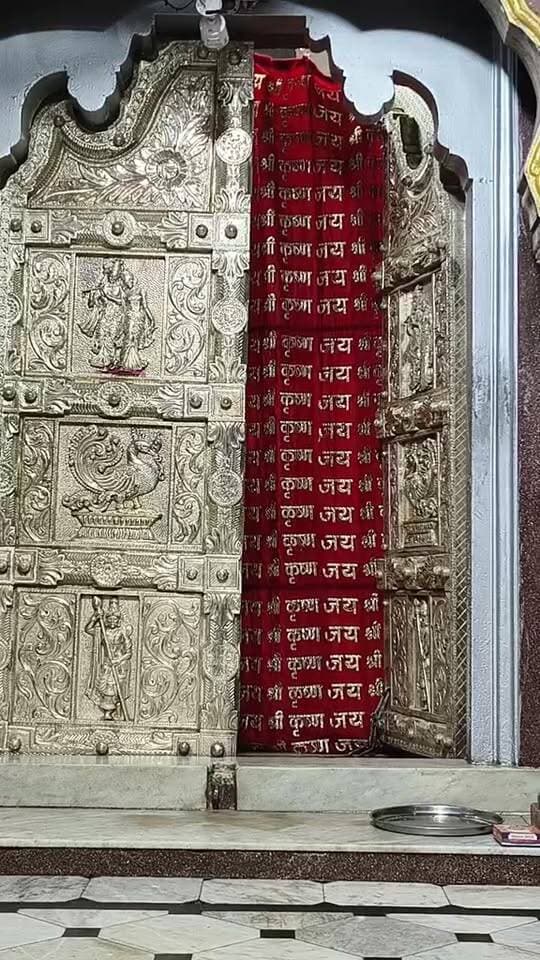 जय
श्री कृष्ण जय
श्री कृष्ण जय
श्री कृष्ण जय श्री
श्री कृष्ण जय श्री
श्री कृष्ण जय श्री
श्री कृष्ण जय श्री
श्री कृष्ण जय श्री
श्री कृष्ण जय श्री
श्री कृष्ण जय श्री
श्री कृष्ण जय श्री
श्री कृष्ण जय श्री
श्री कृष्ण जय श्री
श्री कृष्ण जय श्री
श्री कृष्ण जय श्री
श्री कृष्ण जय श्री
श्री कृष्ण जय श्री
श्री कृष्ण जय श्री
श्री कृष्ण जय श्री
श्री कृष्ण जय श्री
श्री कृष्ण जय श्री
जय श्री कृष्ण जय श्री
जय श्री कृष्ण जय
कृष्ण जय